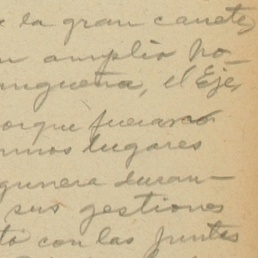 la gran canete,
amplio ho-
el Eje,
porque fueron
mos lugares
gunera duran-
sus gestiones
to con las juntas